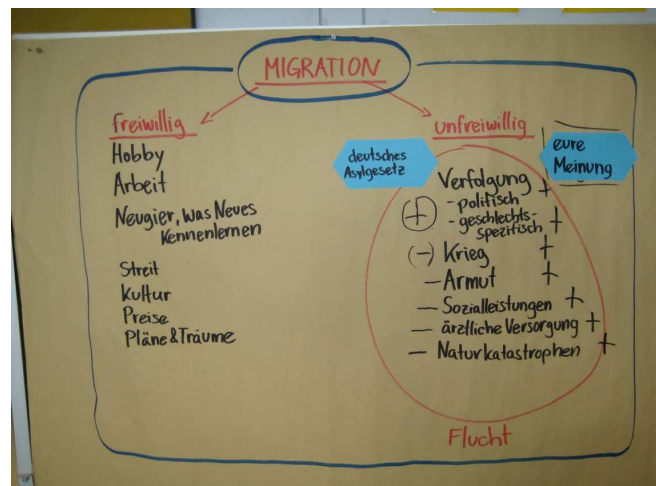 MIGRATION
freiwillig
Hobby
Arbeit
Neugier, Was Neues
Kennenlernen
Streit
Kultur
Preise
Pläne & Träume
unfreiwillig
deutsches
Asylgesetz
eure
Meinung
Verfolgung +
(+) - politisch
- geschlechts-
spezifisch +
(-) Krieg +
- Armut +
- Sozialleistungen +
- ärztliche Versorgung +
- Naturkatastrophen +
Flucht